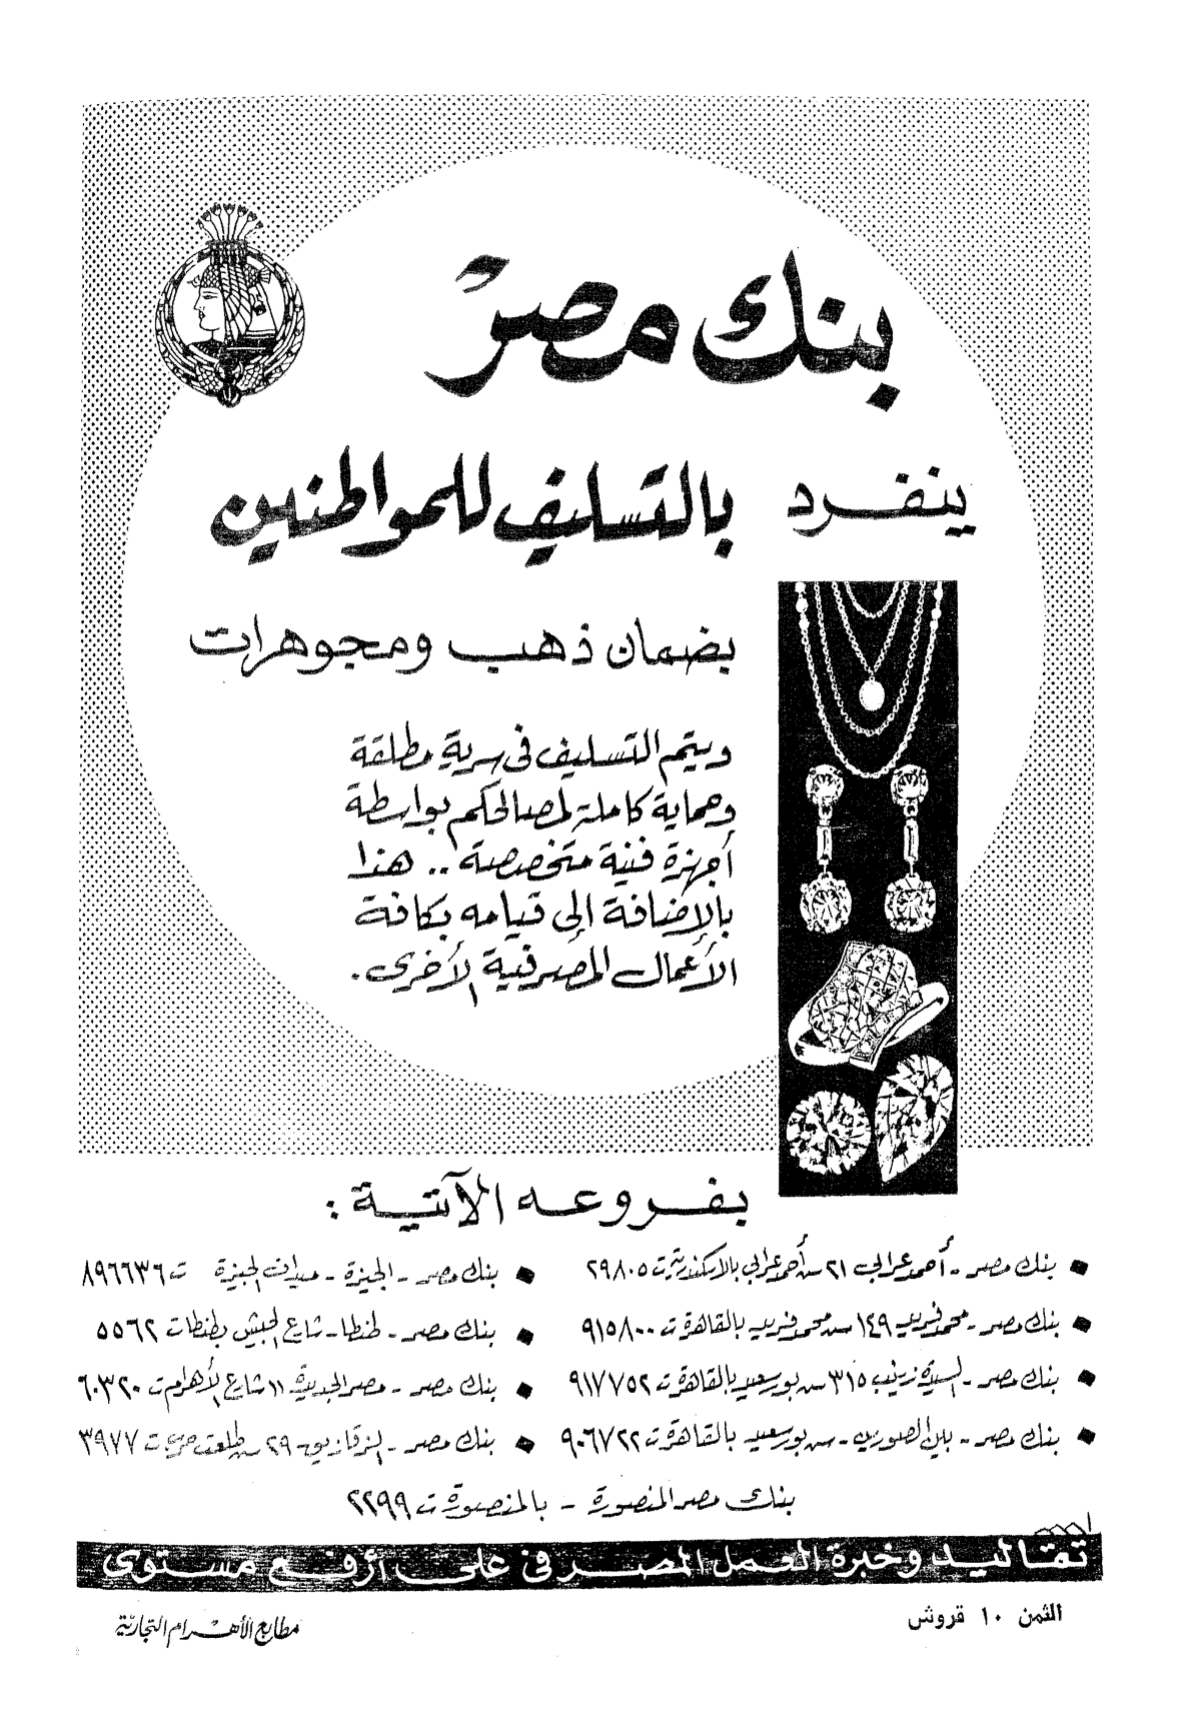 بنك مصر
ينفرد بالتسليف للمواطنين
بضمان ذهب ومجوهرات
ويتم التسليف فى سرية مطلقة
وحماية كاملة لمصالحكم بواسطة
أجهزة فنية متخصصة .. هذا
بالإضافة إلى قيامه بكافة
الأعمال المصرفية الأخرى .
بفروعه الآتية :
بنك مصر - أحمد عرابى ٢١ ش أحمد عرابى بالاسكندرية ت ٢٩٨٠٥
بنك مصر - محمد فريد ١٤٩ ش محمد فريد بالقاهرة ت ٩١٥٨٠٠
بنك مصر - السيدة زينب ٣١٥ ش بورسعيد بالقاهرة ت ٩١٧٧٥٢
بنك مصر - بين الصورين - ش بورسعيد بالقاهرة ت ٩٠٦٧٢٢
بنك مصر - الجيزة - ميدان الجيزة ت ٨٩٦٦٣٦
بنك مصر - طنطا - شارع الجيش بطنطا ت ٥٥٦٢
بنك مصر - مصر الجديدة ١١ شارع الأهرام ت ٦٠٣٢٠
بنك مصر - الزقازيق - ٢٩ ش طلعت حرب ت ٣٩٧٧
بنك مصر المنصورة - بالمنصورة ت ٢٢٩٩
تقاليد وخبرة العمل المصرفى على أرفع مستوى
الثمن ١٠ قروش
مطابع الأهرام التجارية